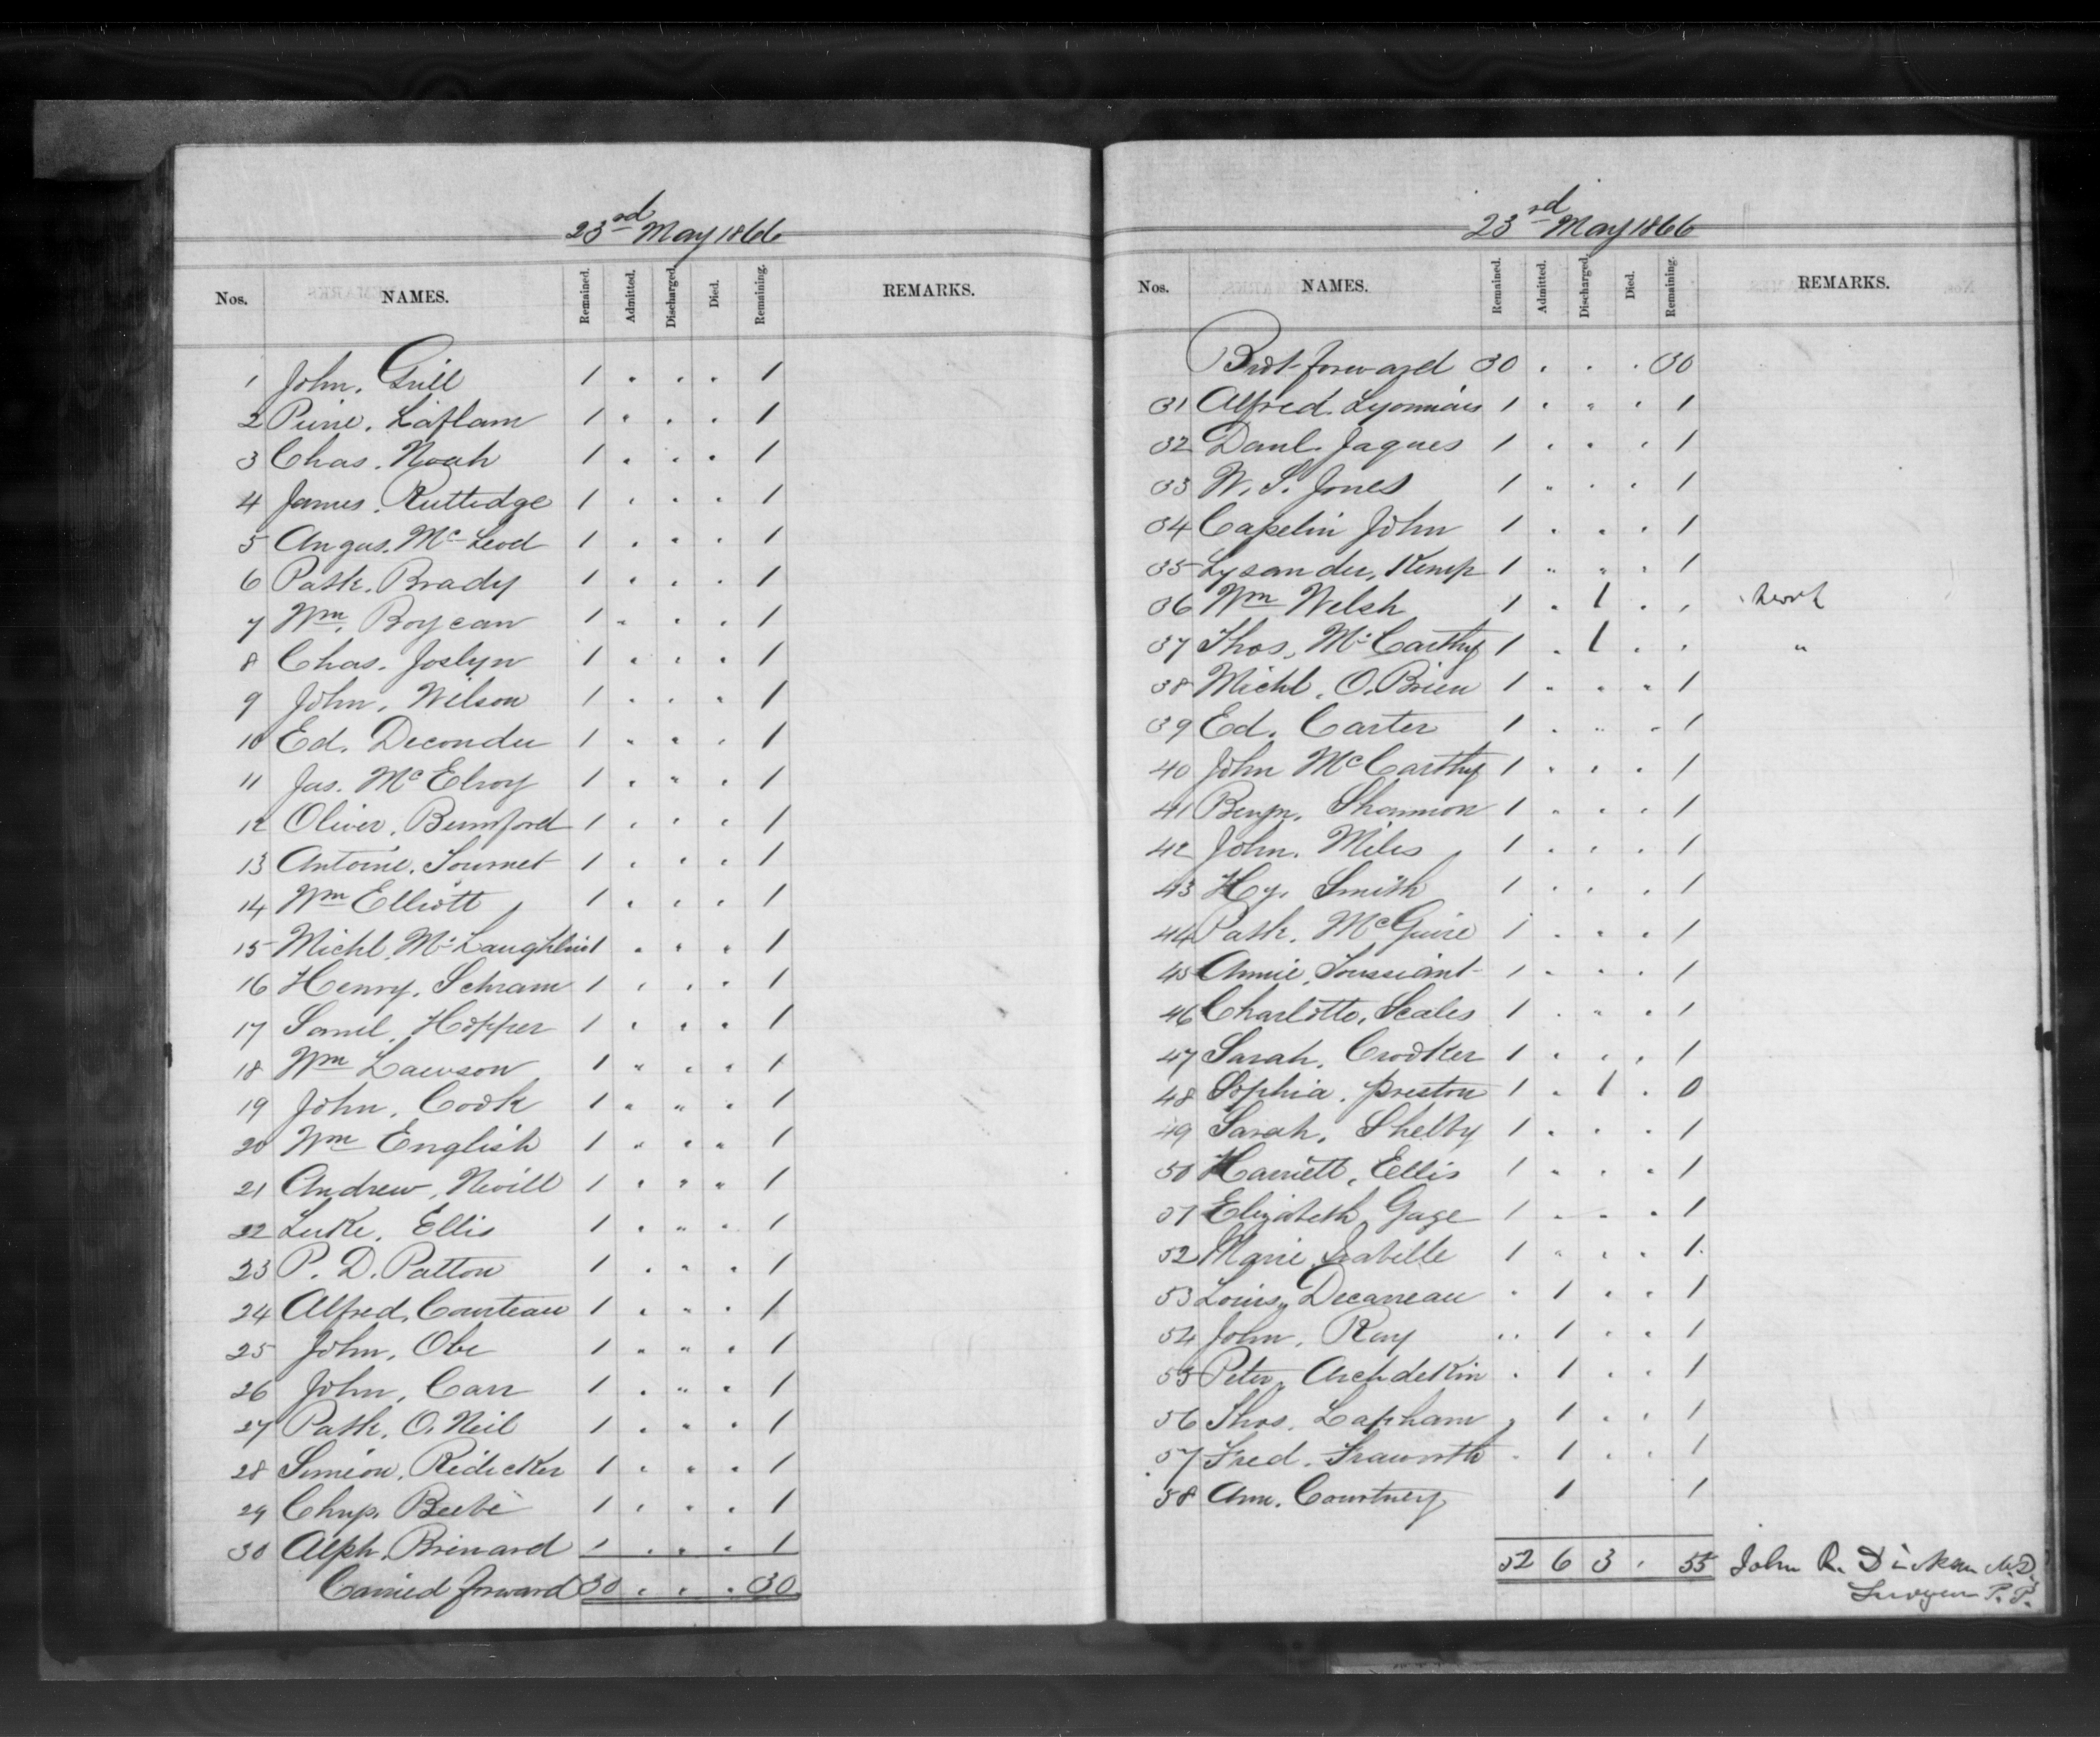 23rd May 1866
Nos. NAMES. Remained. Admitted. Discharged. Died. Remaining. REMARKS.
1 John. Grill 1 . . . 1
2 Pierre. Laflam 1 . . . 1
3 Chas. Noah 1 . . . 1
4 James. Ruttedge 1 . . . 1
5 Angus. McLeod 1 . . . 1
6 Patk. Brady 1 . . . 1
7 Wm. Boycan 1 . . . 1
8 Chas. Joslyn 1 . . . 1
9 John. Wilson 1 . . . 1
10 Ed. Deconder 1 . . . 1
11 Jas. McElroy 1 . . . 1
12 Oliver. Bumford 1 . . . 1
13 Antoine. Tournet 1 . . . 1
14 Wm Elliott 1 . . . 1
15 Michl. McLaughlin 1 . . . 1
16 Henry. Schram 1 . . . 1
17 Saml. Hopper 1 . . . 1
18 Wm Lawson 1 . . . 1
19 John. Cook 1 . . . 1
20 Wm English 1 . . . 1
21 Andrew. Nevill 1 . . . 1
22 Luke. Ellis 1 . . . 1
23 P. D. Patton 1 . . . 1
24 Alfred. Courteau 1 . . . 1
25 John. Obe 1 . . . 1
26 John. Carr 1 . . . 1
27 Patk. O.Neil 1 . . . 1
28 Simeon. Ridicker 1 . . . 1
29 Chrp. Beebe 1 . . . 1
30 Alph. Brinard 1 . . . 1
Carried forward 30 . . . 30
23rd May 1866
Nos. NAMES. Remained. Admitted. Discharged. Died. Remaining. REMARKS.
Brot forward 30 . . . 30
31 Alfred. Lyonnais 1 . . . 1
32 Danl. Jaques 1 . . . 1
33 W. S. Jones 1 . . . 1
34 Capelin John 1 . . . 1
35 Lysander. Kemp 1 . . . 1
36 Wm Welsh 1 . 1 . .
37 Thos. McCarthy 1 . 1 . . "
38 Michl. O.Brien 1 . . . 1
39 Ed. Carter 1 . . . 1
40 John McCarthy 1 . . . 1
41 Benjn. Shannon 1 . . . 1
42 John. Miles 1 . . . 1
43 Hy. Smith 1 . . . 1
44 Patk. McGuire 1 . . . 1
45 Annie. Toussiant 1 . . . 1
46 Charlotte. Scales 1 . . . 1
47 Sarah. Crooker 1 . . . 1
48 Sophia. Preston 1 . 1 . 0
49 Sarah. Shelby 1 . . . 1
50 Harriett. Ellis 1 . . . 1
51 Elizabeth Gage 1 . . . 1
52 Marie Isabelle 1 . . . 1
53 Louis. Decarreau . 1 . . 1
54 John. Ray . 1 . . 1
55 Peter. Archdekin . 1 . . 1
56 Thos. Lapham . 1 . . 1
57 Fred. Traworth . 1 . . 1
58 Ann. Courtney 1 1
52 6 3 . 55 John R. Dickson M.D.
Surgeon P. P.